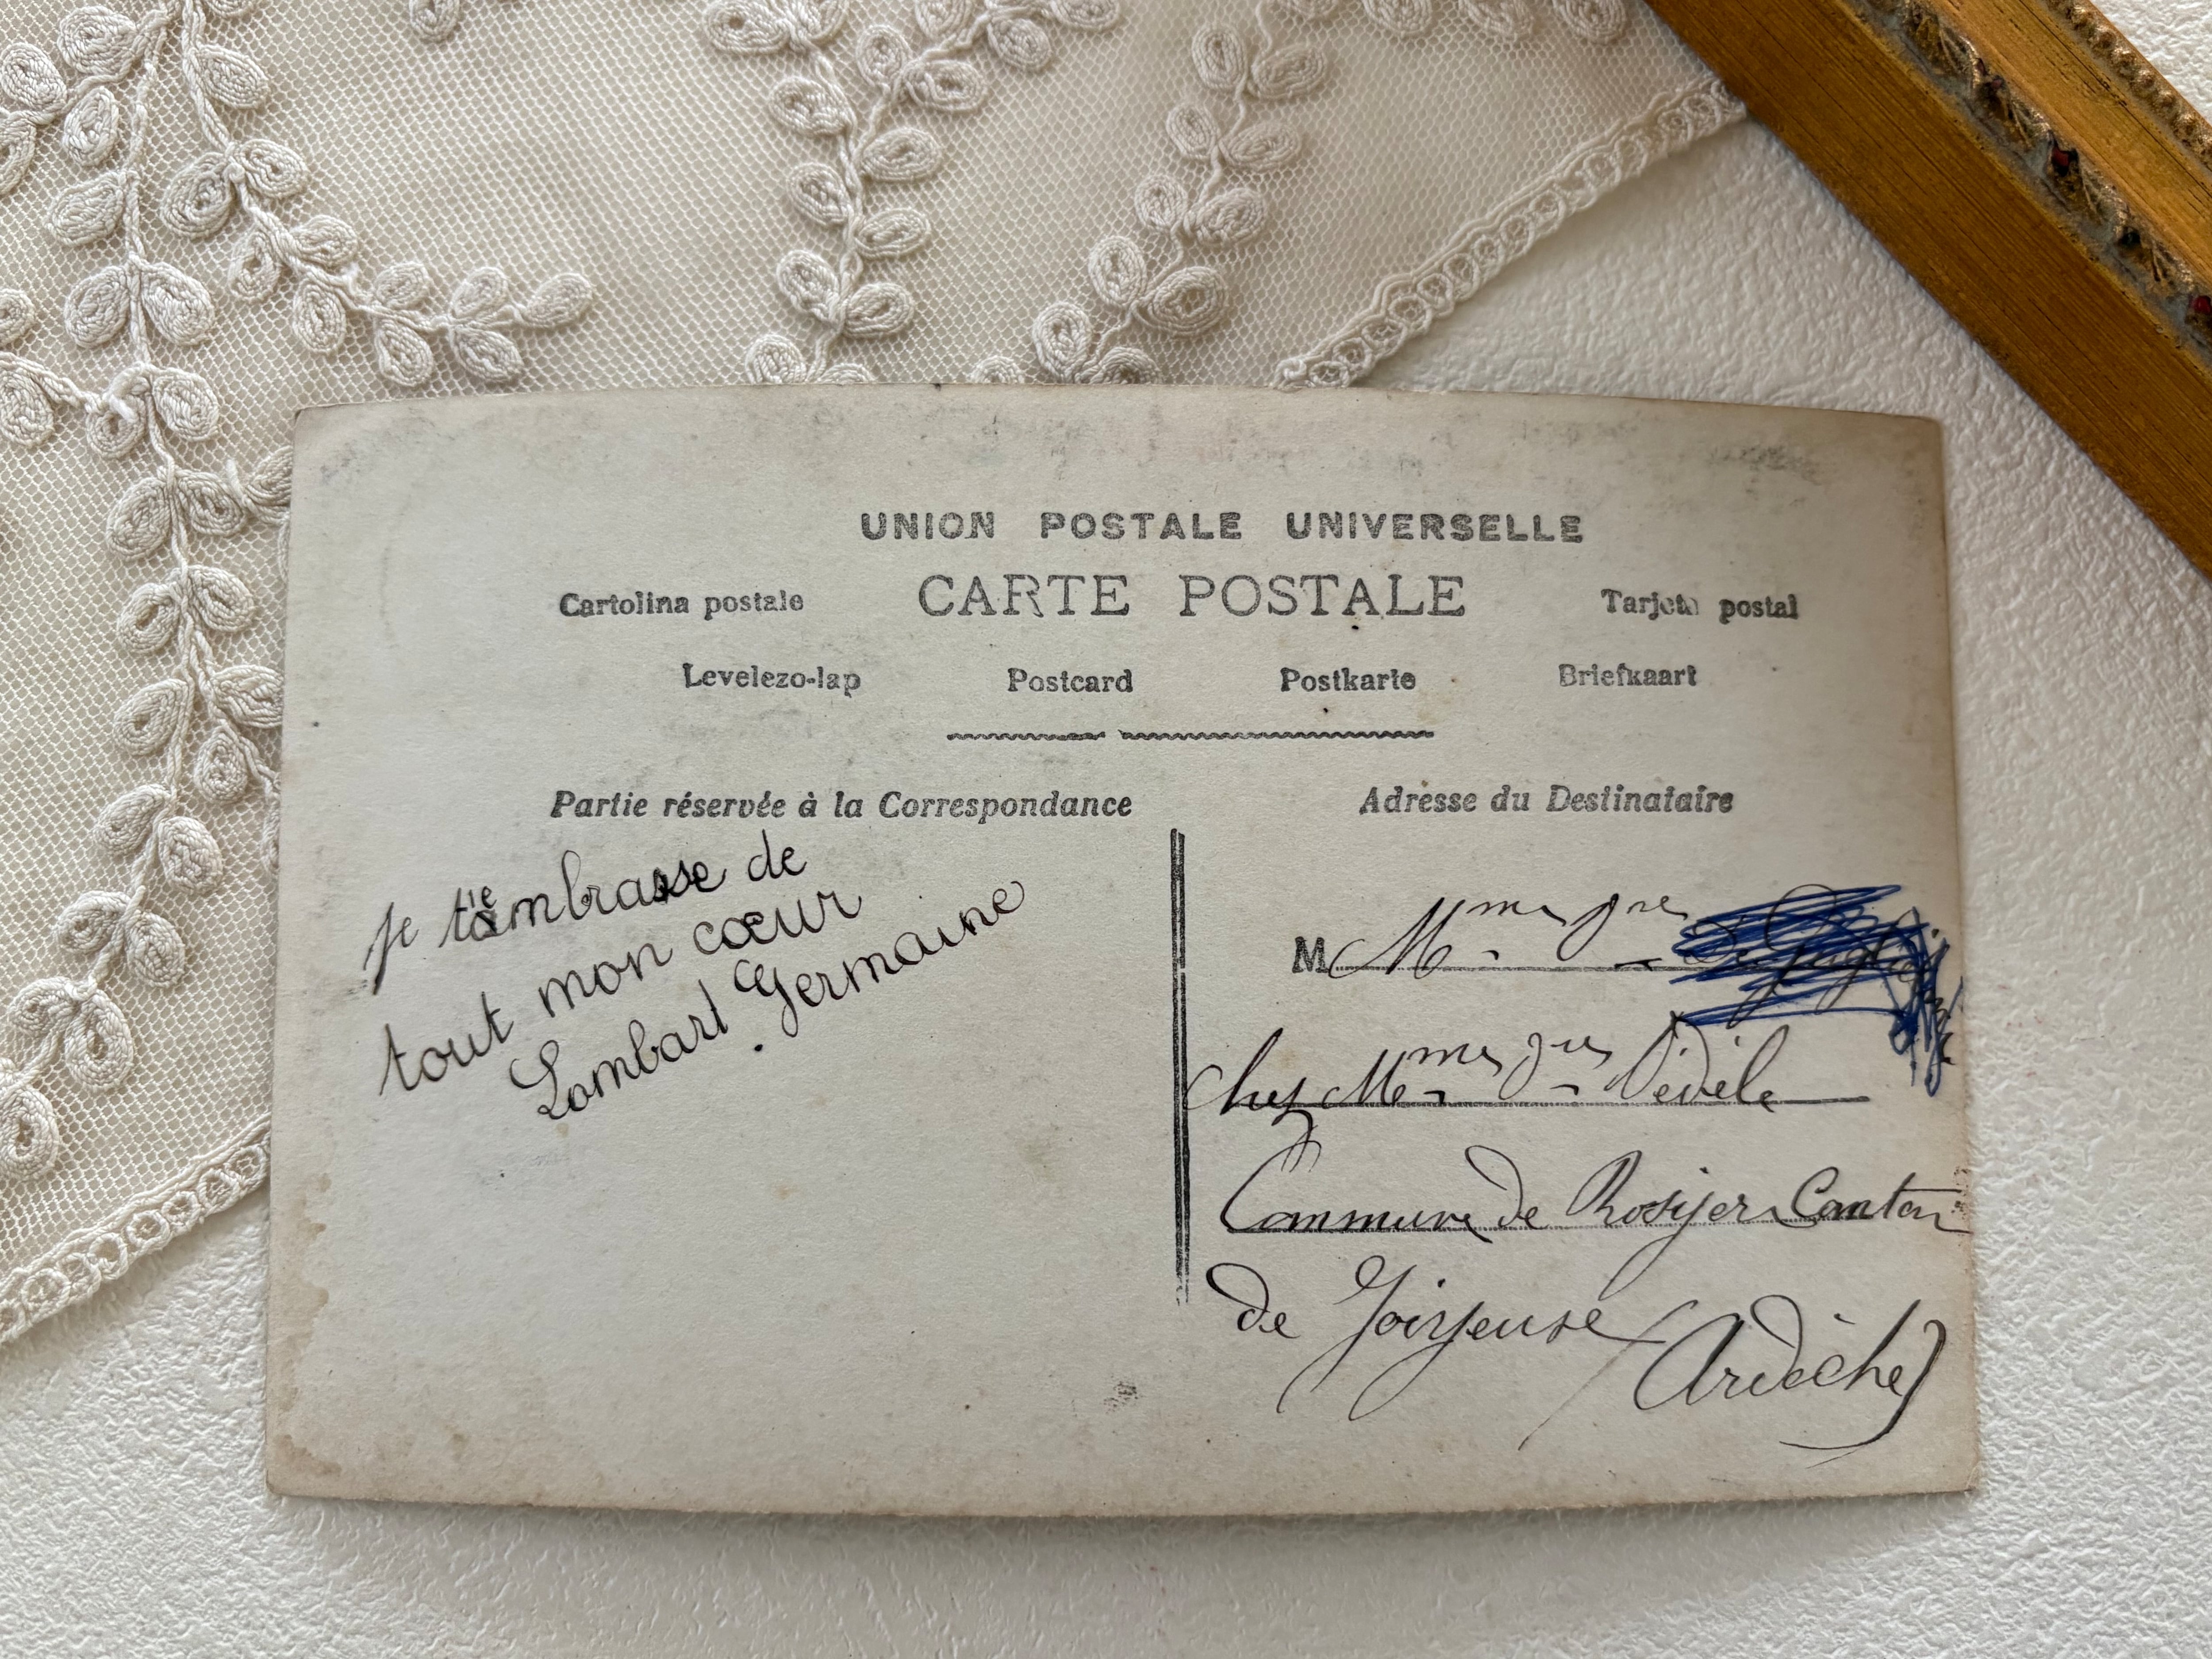 UNION POSTALE UNIVERSELLE
Cartolina postale CARTE POSTALE Tarjeta postal
Levelezo-lap Postcard Postkarte Briefkaart
Partie réservée à la Correspondance
je t'embrasse de
tout mon cœur
Lombart Germaine
Adresse du Destinataire
M M
chez M
Commune de Rosijer Canton
de Joiyeuse
(Ardèche)